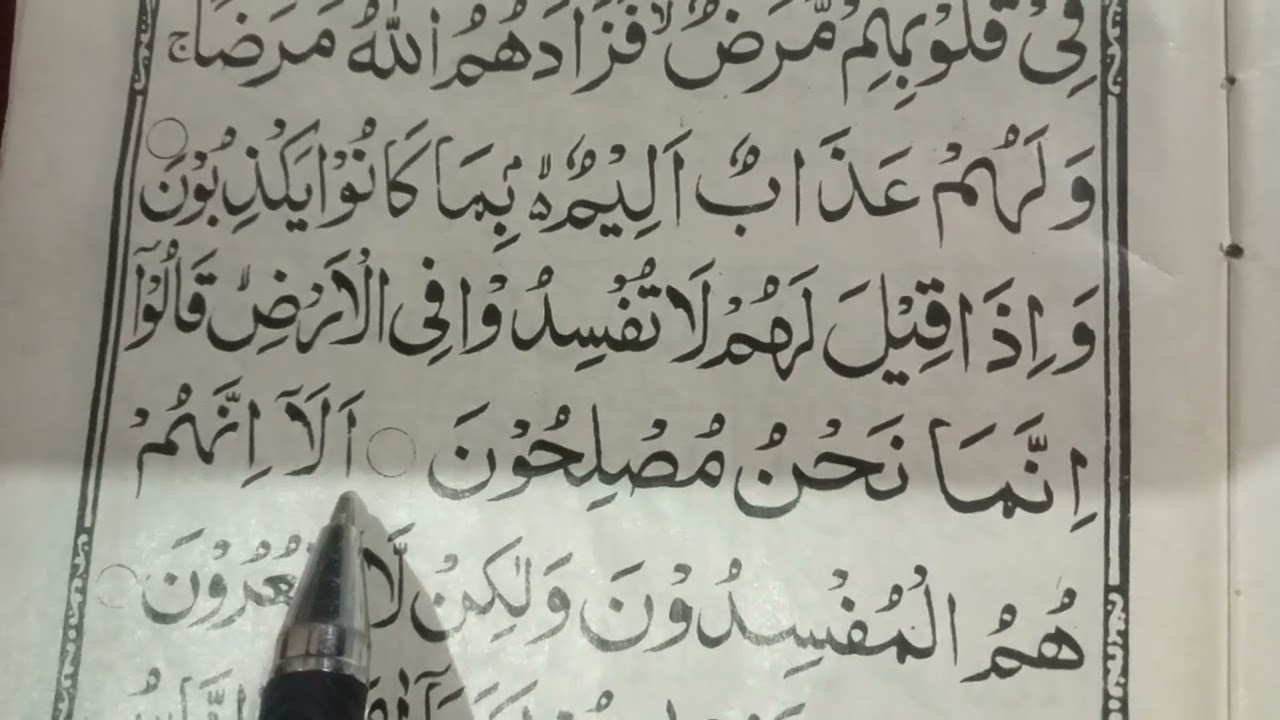 فِیْ قُلُوْبِهِمْ مَّرَضٌ ۙ فَزَادَهُمُ اللّٰهُ مَرَضًا ۚ
وَلَهُمْ عَذَابٌ اَلِیْمٌ ۙ۬ بِمَا كَانُوْا یَكْذِبُوْنَ ○
وَاِذَا قِیْلَ لَهُمْ لَا تُفْسِدُوْا فِی الْاَرْضِ ۙ قَالُوْۤا
اِنَّمَا نَحْنُ مُصْلِحُوْنَ ○ اَلَاۤ اِنَّهُمْ
هُمُ الْمُفْسِدُوْنَ وَلٰكِنْ لَّا